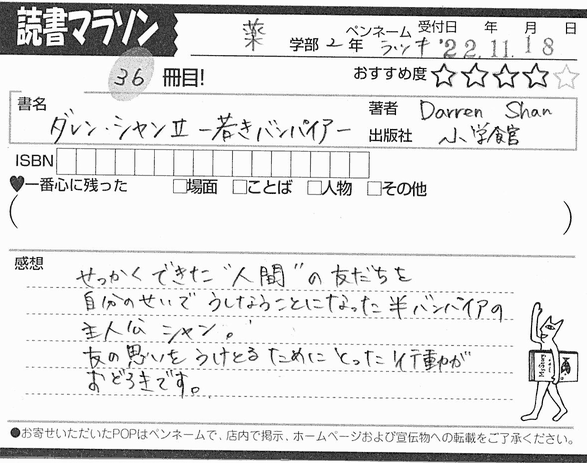 読書マラソン
薬 学部 2 年
ペンネーム ラッキ
受付日 年 月 日
'22.11.18
36 冊目!
おすすめ度 ☆☆☆☆☆
書名
ダレン・シャンⅡ ー若きバンパイアー
著者 Darren Shan
出版社 小学館
ISBN
♥一番心に残った □場面 □ことば □人物 □その他
( )
感想
せっかくできた"人間"の友だちを
自分のせいでうしなうことになった半バンパイアの
主人公 シャン。
友の思いをうけとるためにとった行動が
おどろきです。
●お寄せいただいたPOPはペンネームで、店内で掲示、ホームページおよび宣伝物への転載をご了承ください。